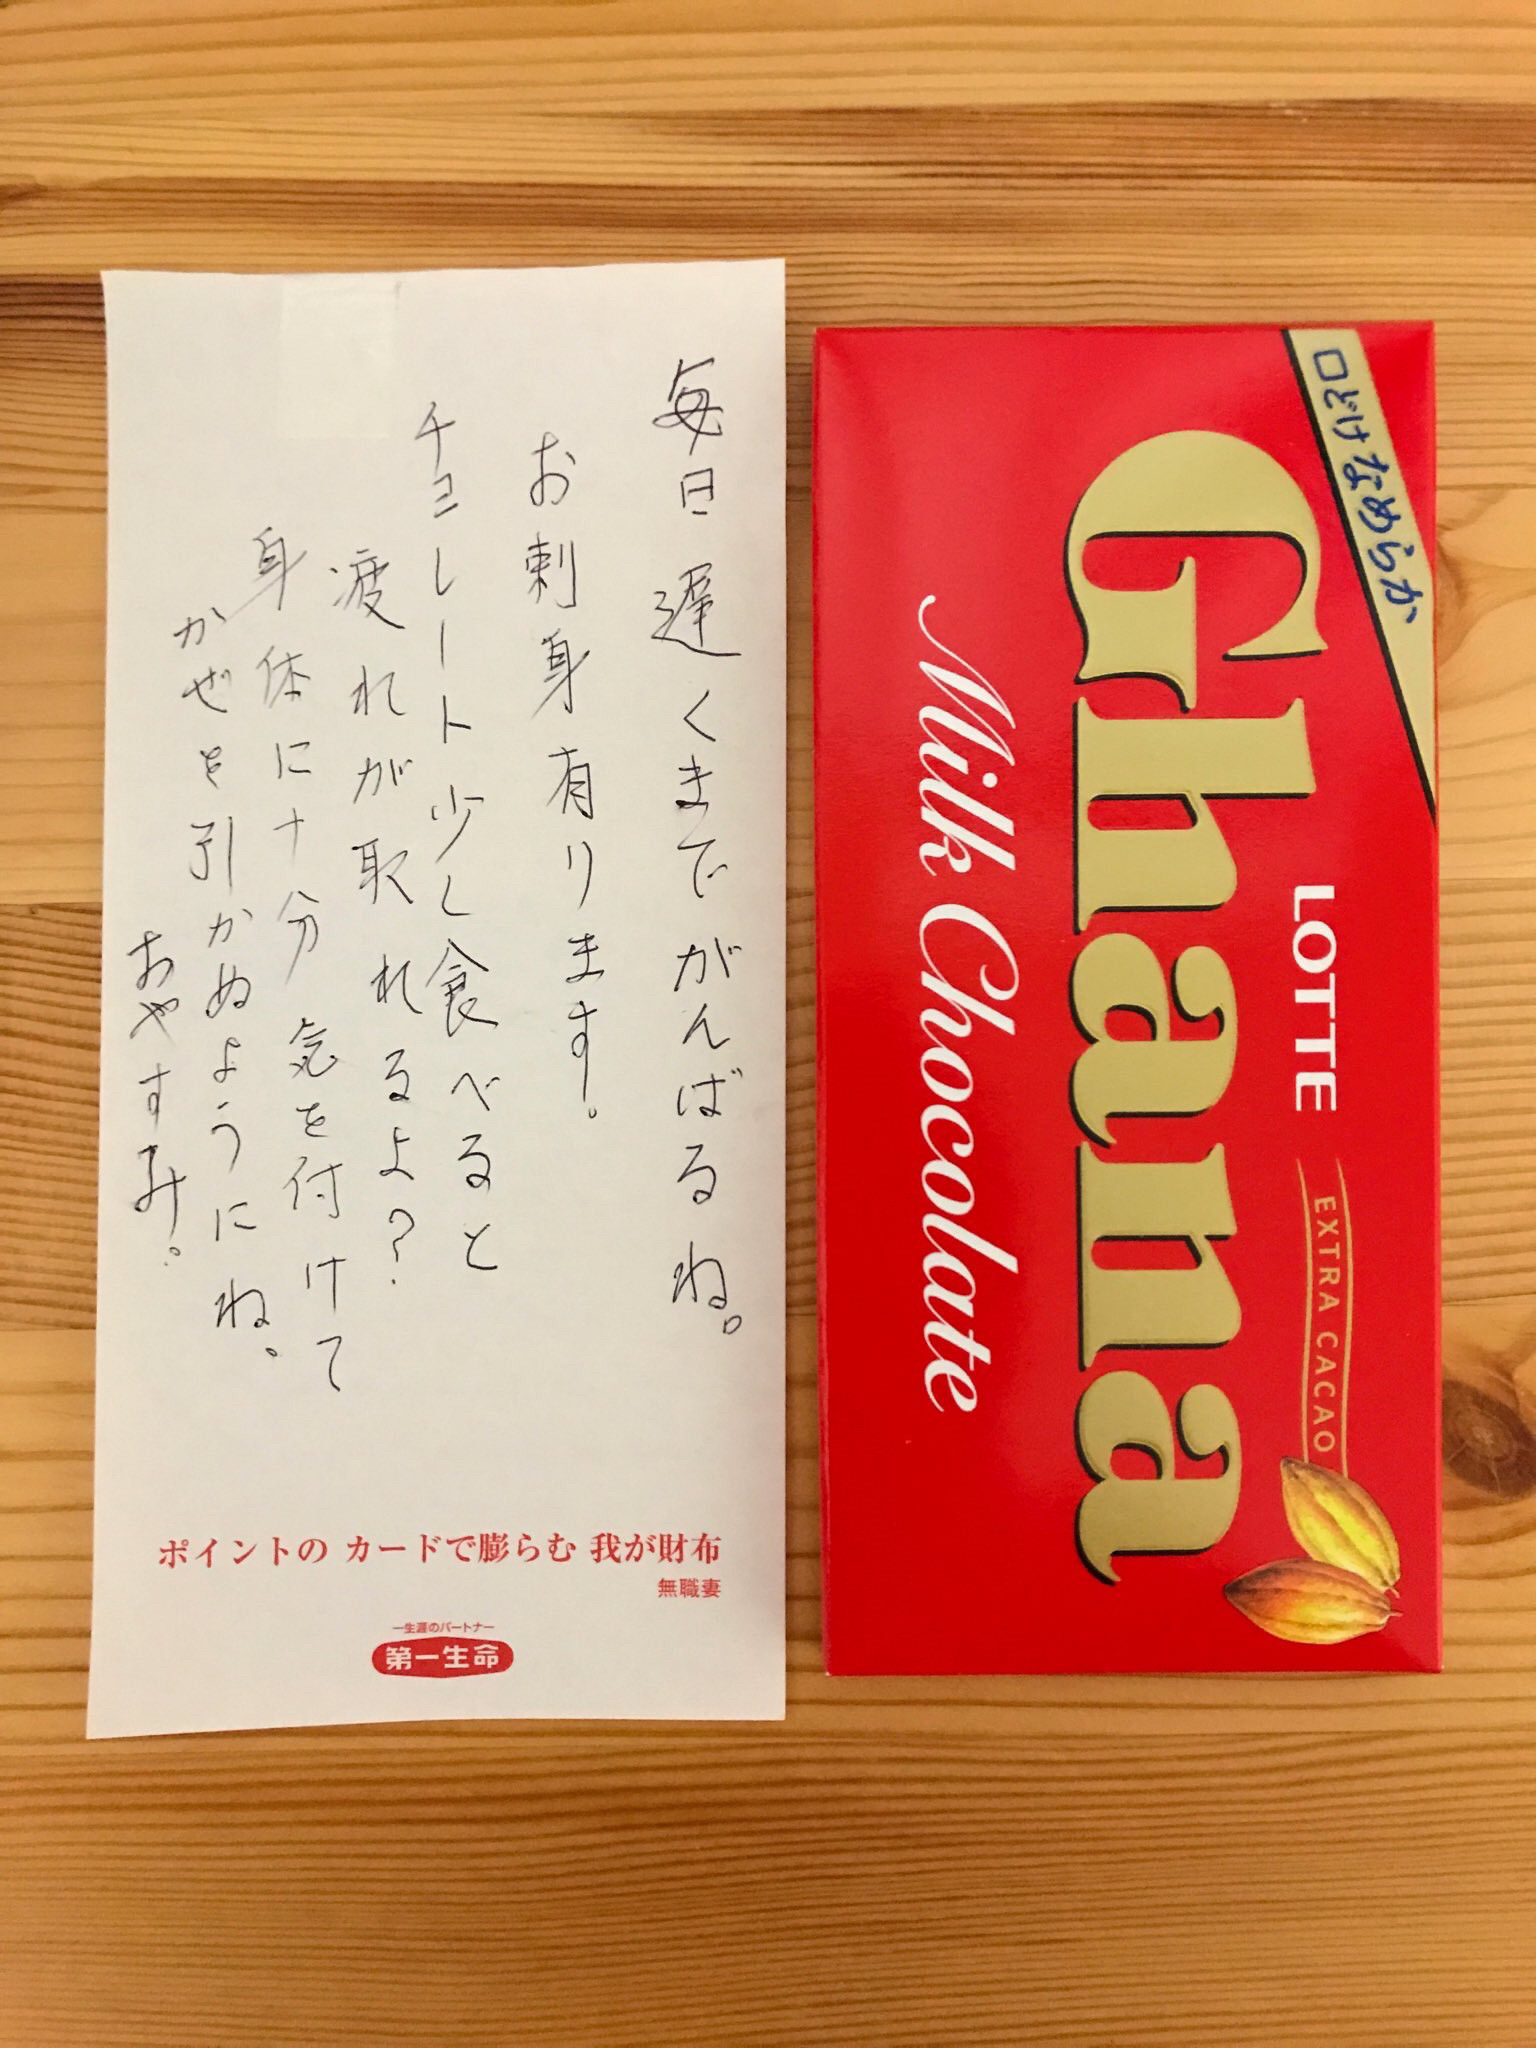 毎日遅くまでがんばるね。
お刺身有ります。
チョコレート少し食べると
疲れが取れるよ?
身体に十分気を付けて
かぜを引かぬようにね。
おやすみ。
ポイントの カードで膨らむ 我が財布
無職妻
一生涯のパートナー
第一生命
口どけなめらか
LOTTE
EXTRA CACAO
Ghana
Milk Chocolate